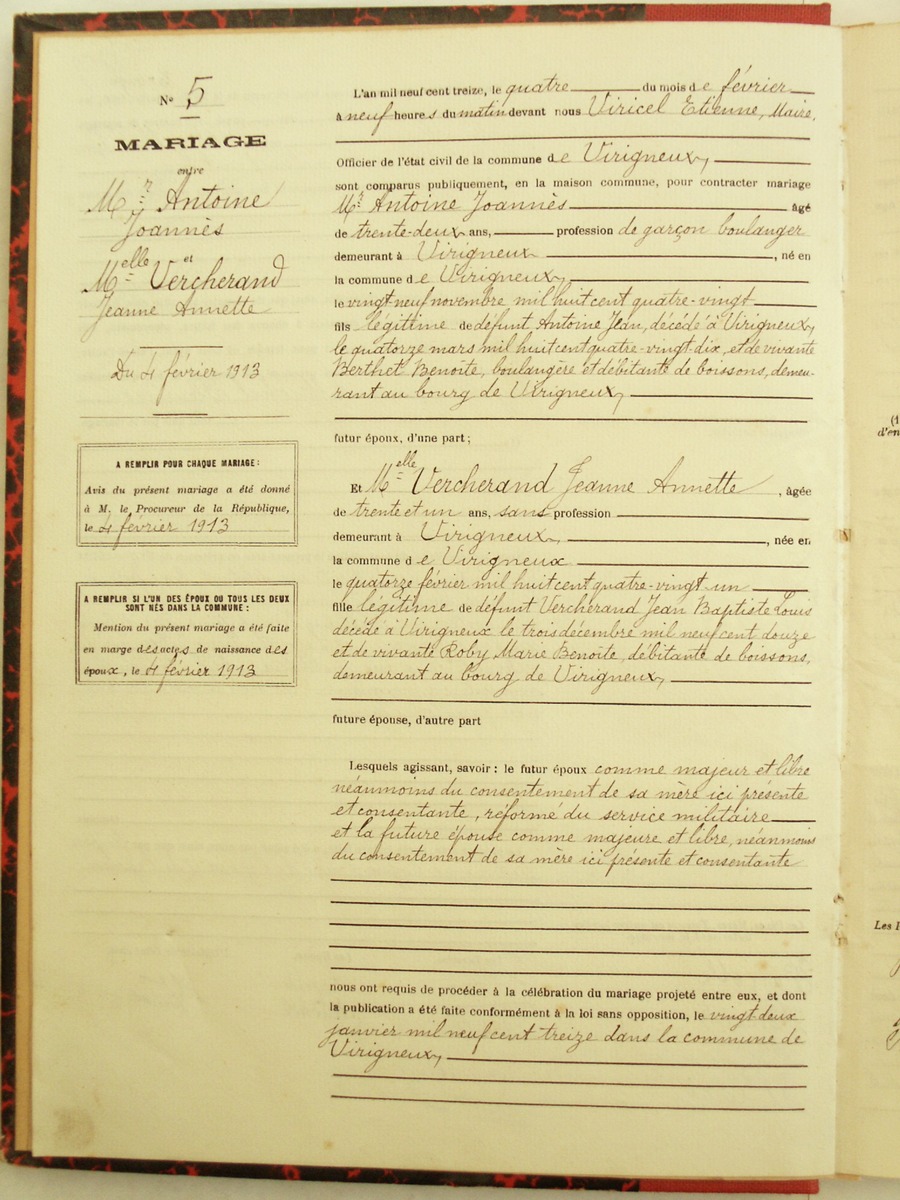 N° 5
MARIAGE
entre
Mr Antoine
Joannès
et
Melle Vercherand
Jeanne Annette
Du 4 février 1913
A REMPLIR POUR CHAQUE MARIAGE :
Avis du présent mariage a été donné
à M. le Procureur de la République,
le 4 février 1913
A REMPLIR SI L'UN DES ÉPOUX OU TOUS LES DEUX
SONT NÉS DANS LA COMMUNE :
Mention du présent mariage a été faite
en marge des actes de naissance des
époux, le 4 février 1913
L'an mil neuf cent treize, le quatre du mois de février
à neuf heures du matin devant nous Viricel Etienne, Maire,
Officier de l'état civil de la commune de Virigneux,
sont comparus publiquement, en la maison commune, pour contracter mariage
Mr Antoine Joannès âgé
de trente-deux ans, profession de garçon boulanger
demeurant à Virigneux, né en
la commune de Virigneux,
le vingt neuf novembre mil huit cent quatre-vingt
fils légitime de défunt Antoine Jean, décédé à Virigneux,
le quatorze mars mil huit cent quatre-vingt dix, et de vivante
Berthet Benoîte, boulangère et débitante de boissons, demeu-
rant au bourg de Virigneux,
futur époux, d'une part ;
Et Melle Vercherand Jeanne Annette, âgée
de trente et un ans, sans profession
demeurant à Virigneux, née en
la commune de Virigneux
le quatorze février mil huit cent quatre-vingt-un
fille légitime de défunt Vercherand Jean Baptiste Louis
décédé à Virigneux le trois décembre mil neuf cent douze
et de vivante Roby Marie Benoîte, débitante de boissons,
demeurant au bourg de Virigneux,
future épouse, d'autre part
Lesquels agissant, savoir : le futur époux comme majeur et libre
néaumoins du consentement de sa mère ici présente
et consentante, réformé du service militaire
et la future épouse comme majeure et libre, néanmoins
du consentement de sa mère ici présente et consentante
nous ont requis de procéder à la célébration du mariage projeté entre eux, et dont
la publication a été faite conformément à la loi sans opposition, le vingt-deux
janvier mil neuf cent treize dans la commune de
Virigneux,
(1
d'en
Les